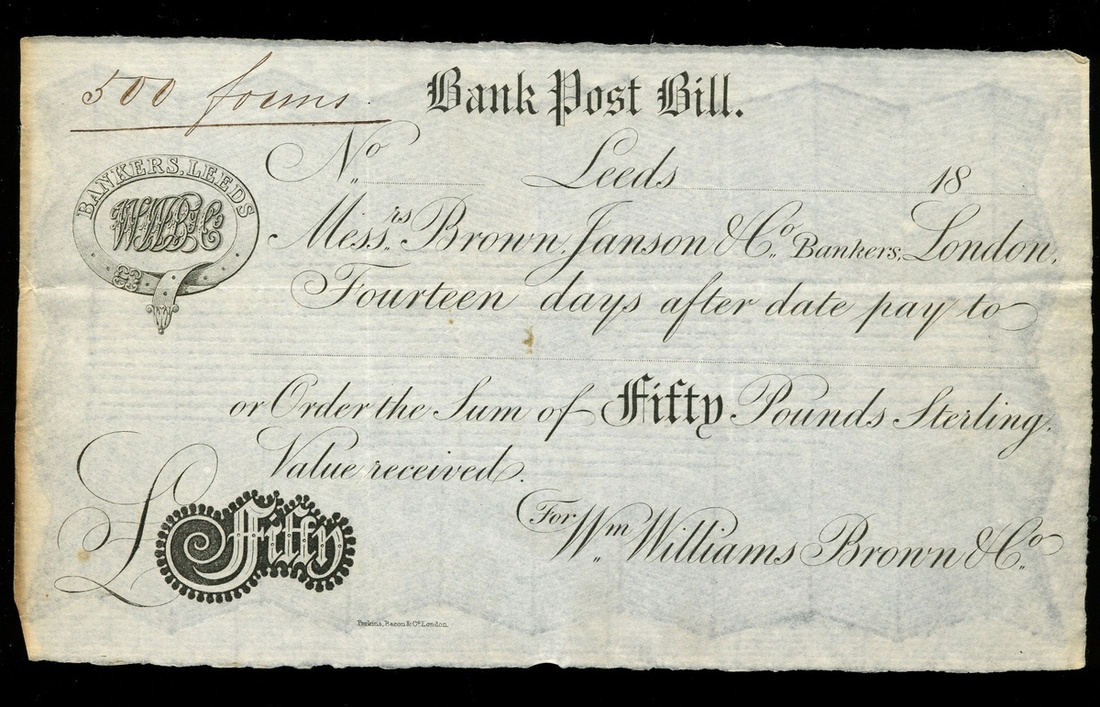 500 forms.
Bank Post Bill.
No. Leeds 18
BANKERS, LEEDS
WWB&Co
Messrs. Brown, Janson & Co. Bankers, London,
Fourteen days after date pay to
or Order the Sum of Fifty Pounds Sterling.
Value received.
£ Fifty
For Wm. Williams Brown & Co.
Perkins, Bacon & Co. London.